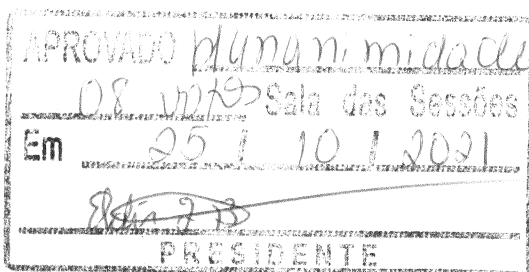 APROVADO p/unanimidade
08 votos Sala das Sessões
Em 25 / 10 / 2021
PRESIDENTE